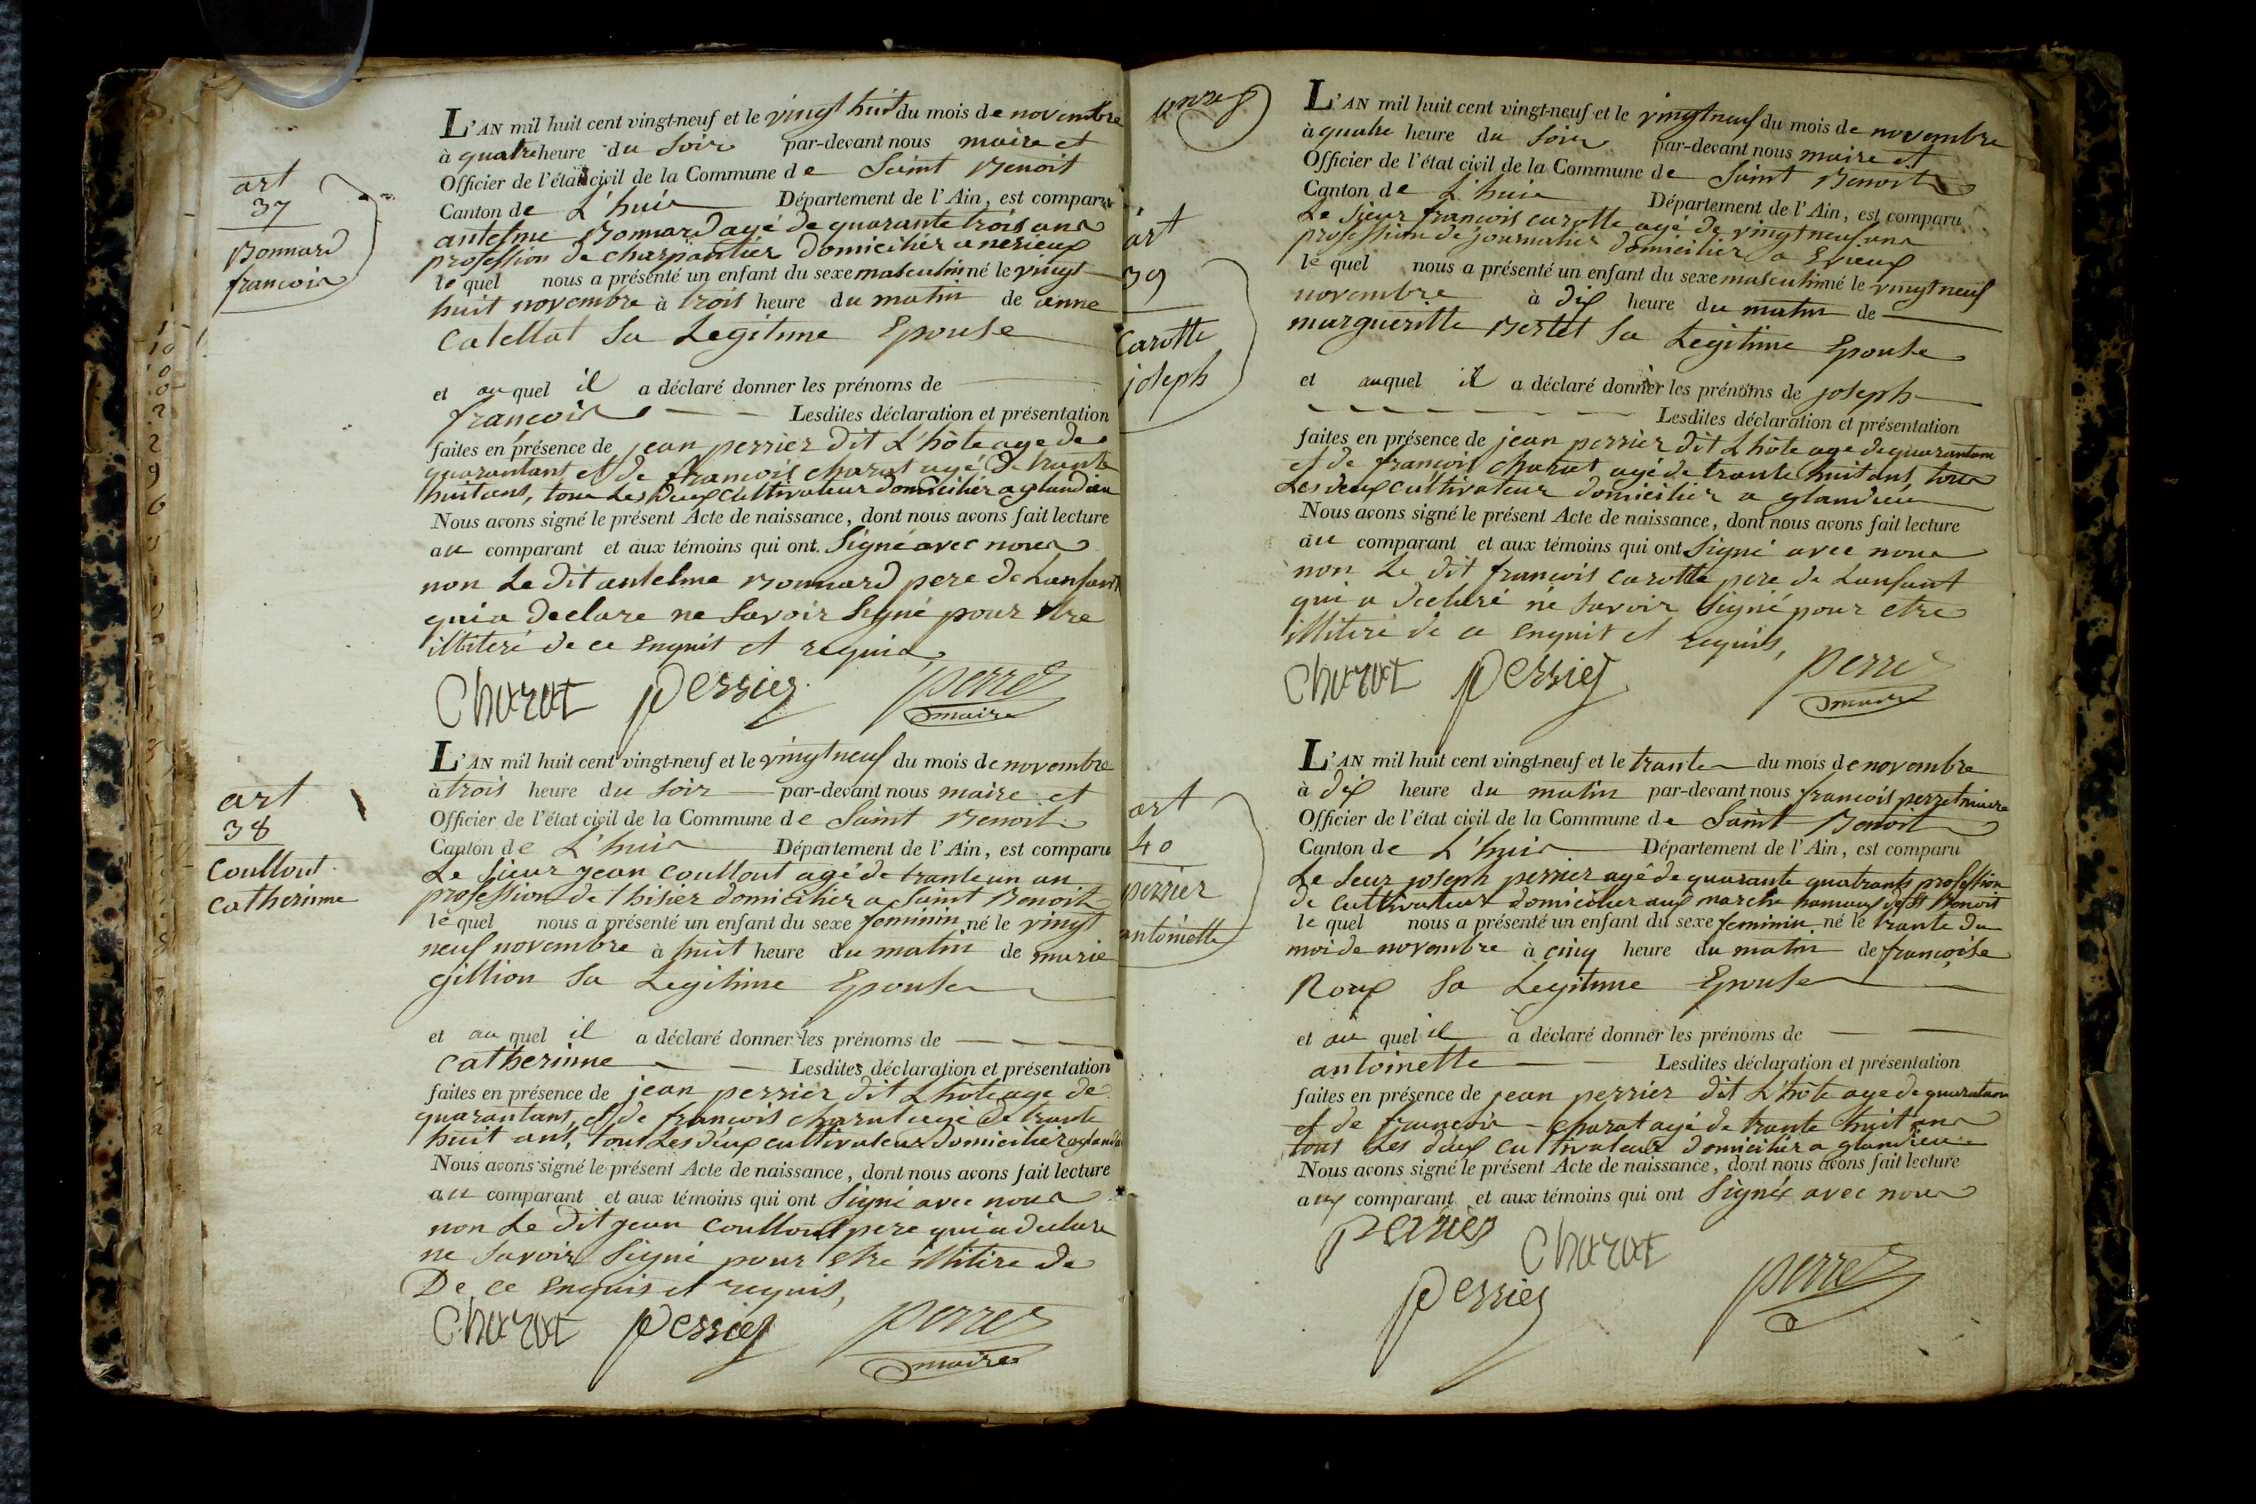 art
37
Bonnard
francois
L'AN mil huit cent vingt-neuf et le vingt huit du mois de novembre
à quatre heure du soir par-devant nous maire et
Officier de l'état civil de la Commune de Saint Benoit
Canton de L'huis Département de l'Ain, est comparu
antelme Bonnard agé de quarante trois ans
profession de charpantier domicilier a nerieux
le quel nous a présenté un enfant du sexe masculin né le vingt
huit novembre à trois heure du matin de anne
Catellat sa Legitime Epouse
et au quel il a déclaré donner les prénoms de
françois Lesdites déclaration et présentation
faites en présence de jean perrier dit L'hôte age de
quarantant et de francois charat agé de trante
huit ans, tous Les deux cultivateur domicilier a glandieu
Nous avons signé le présent Acte de naissance, dont nous avons fait lecture
au comparant et aux témoins qui ont Signé avec nous
non Le dit antelme Bonnard pere de Lanfant
qui a declare ne savoir signé pour etre
illiteré de ce enquit et requis
Charat perrier perret
maire
art
38
Coullout
Catherinne
L'AN mil huit cent vingt-neuf et le vingt neuf du mois de novembre
à trois heure du soir par-devant nous maire et
Officier de l'état civil de la Commune de Saint Benoit
Canton de L'huis Département de l'Ain, est comparu
Le sieur jean coullout agé de trante un an
profession de thisier domicilier a Saint Benoit
le quel nous a présenté un enfant du sexe feminin né le vingt
neuf novembre à huit heure du matin de marie
gillion sa Legitime Epouse
et au quel il a déclaré donner les prénoms de
catherinne Lesdites déclaration et présentation
faites en présence de jean perrier dit L'hôte age de
quarantans, et de francois charat agé de trante
huit ans, tous Les deux cultivateur domicilier a glandieu
Nous avons signé le présent Acte de naissance, dont nous avons fait lecture
au comparant et aux témoins qui ont Signé avec nous
non Le dit jean coullout pere qui a declare
ne savoir signé pour etre illitire de
De ce enquis et requis,
Charat perrier perret
maire
art
39
Carotte
joseph
L'AN mil huit cent vingt-neuf et le vingt neuf du mois de novembre
à quatre heure du soir par-devant nous maire et
Officier de l'état civil de la Commune de Saint Benoit
Canton de L'huis Département de l'Ain, est comparu
Le sieur françois carotte agé de vingt neuf ans
profession de journalier domicilier a Evieux
le quel nous a présenté un enfant du sexe masculin né le vingt neuf
novembre à dix heure du matin de
margueritte Bertet sa Legitime Epouse
et auquel il a déclaré donner les prénoms de joseph
Lesdites déclaration et présentation
faites en présence de jean perrier dit L'hôte age de quarantans
et de françois charat agé de trante huit ans tous
Les deux cultivateur domicilier a glandieu
Nous avons signé le présent Acte de naissance, dont nous avons fait lecture
au comparant et aux témoins qui ont Signé avec nous
non Le dit françois carotte pere de Lanfant
qui a declaré ne savoir signé pour etre
illiteré de ce enquit et requis,
Charat perrier perret
maire
art
40
perrier
antoinette
L'AN mil huit cent vingt-neuf et le trante du mois de novembre
à dix heure du matin par-devant nous francois perret maire
Officier de l'état civil de la Commune de Saint Benoit
Canton de L'huis Département de l'Ain, est comparu
Le seur joseph perrier agé de quarante quatrants profession
de cultivateur domicilier aux marche hamaux de St Benoit
le quel nous a présenté un enfant du sexe feminin né le trante du
moi de novembre à cinq heure du matin de françoise
Roux sa Legitime Epouse
et au quel il a déclaré donner les prénoms de
antoinette Lesdites déclaration et présentation
faites en présence de jean perrier dit L'hôte age de quarantans
et de francois charat agé de trante huit ans
tous Les deux cultivateur domicilier a glandieu
Nous avons signé le présent Acte de naissance, dont nous avons fait lecture
aux comparant et aux témoins qui ont Signé avec nous
perrier Charat
perrier perret